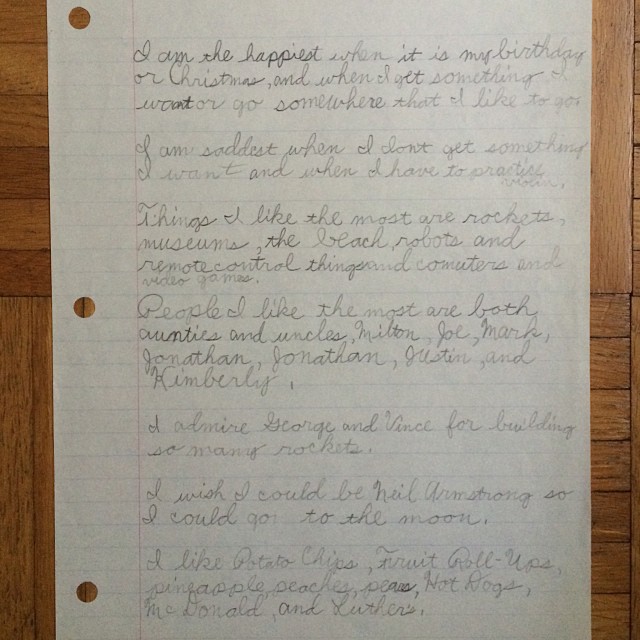 I am the happiest when it is my birthday
or Christmas, and when I get something I
want or go somewhere that I like to go.
I am saddest when I dont get something
I want and when I have to practice
violin.
Things I like the most are rockets,
museums, the beach, robots and
remote control things and comuters and
video games.
People I like the most are both
aunties and uncles, Milton, Joe, Mark,
Jonathan, Jonathan, Justin, and
Kimberly.
I admire George and Vince for building
so many rockets.
I wish I could be Neil Armstrong so
I could go to the moon.
I like Potato Chips, Fruit Roll-Ups,
pineapple, peaches, pears, Hot Dogs,
McDonald, and Luthers.